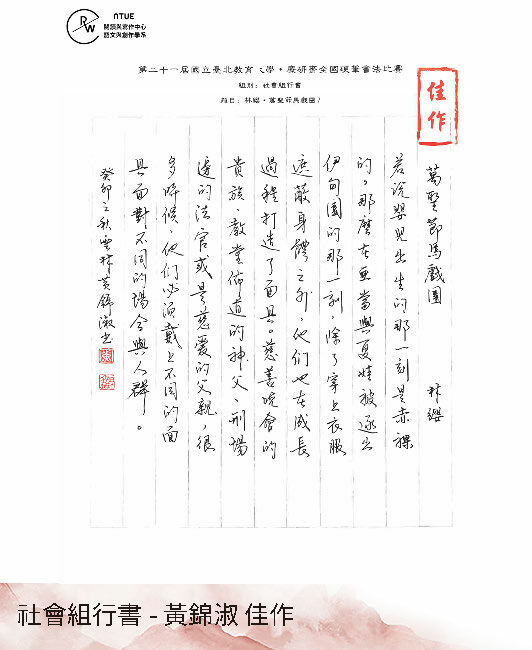 RW
NTUE
閱讀與寫作中心
語文與創作學系
第二十一屆國立臺北教育大學・廢研齋全國硬筆書法比賽
組別：社會組行書
題目：林纓・萬聖節馬戲團
佳作
萬聖節馬戲團 林纓
若說嬰兒出生的那一刻是赤裸
的，那麼在亞當與夏娃被逐出
伊甸園的那一刻，除了穿上衣服
遮蔽身體之外，他們也在成長
過程打造了面具。慈善晚會的
貴族，教堂佈道的神父，刑場
邊的法官或是慈愛的父親，很
多時候，他們必須戴上不同的面
具面對不同的場合與人群。
癸卯之秋雲林黃錦淑書
社會組行書 - 黃錦淑 佳作